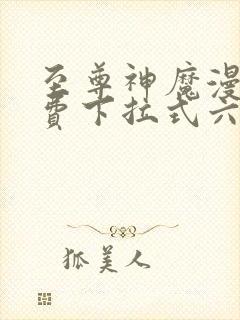 至尊神魔漫
费下拉式六
狐美人